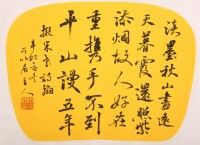 淡墨秋山畫遠
天暮霞還照紫
添烟故人好在
重携手不到
平山謾五年
米芾詩